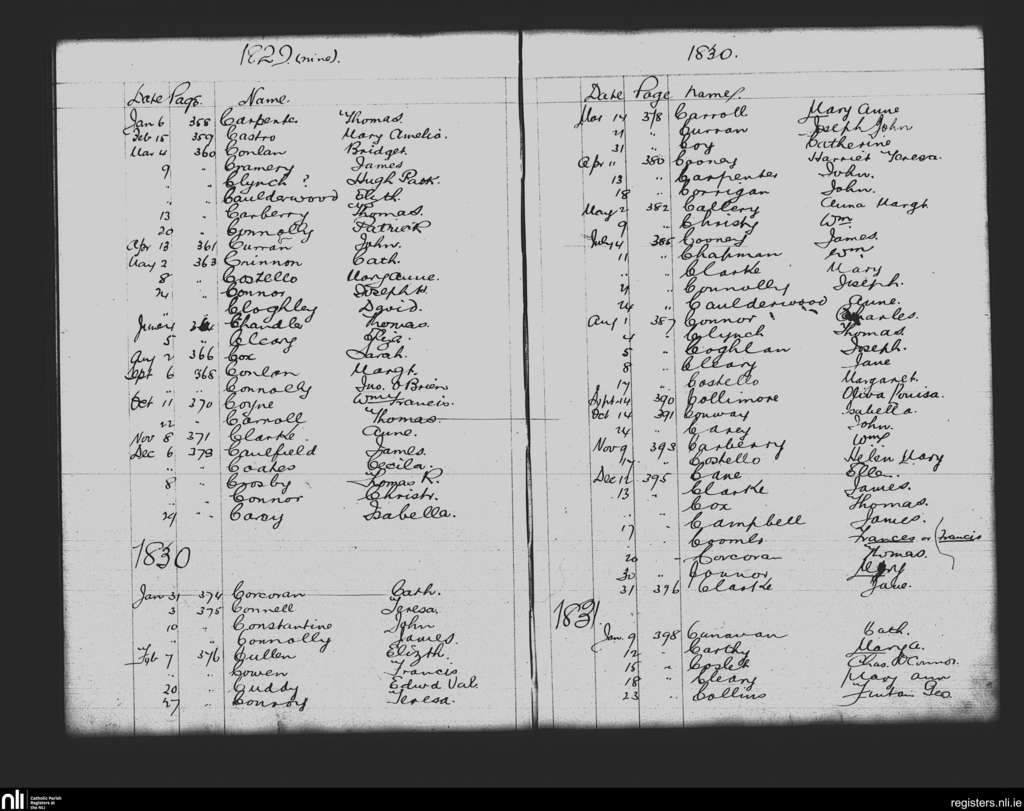 1829 (nine).
Date Page. Name.
Jan 6 358 Carpenter Thomas.
Feb 15 359 Castro Mary Amelia.
Mar 4 360 Conlan Bridget
9 " Cramery James
" " Clynch ? Hugh Patk.
" " Caulderwood Elizth.
13 " Carberry Thomas.
20 " Connolly Patrick
Apr 13 361 Curran John.
May 2 363 Crinnon Cath.
8 " Costello Mary Anne.
24 " Connor Joseph H.
" Cloghley David.
June 4 Chandler Thomas.
5 " Cleary Eliza.
Aug 2 366 Cox Sarah.
Sept 6 368 Conlan Margt.
" " Connolly Jno. O'Brien
Oct 11 370 Coyne Wm Francis.
22 " Carroll Thomas.
Nov 8 371 Clarke. Anne.
Dec 6 373 Caulfield James.
" " Coakes Cecila.
8 " Crosby Thomas R.
" " Connor Christr.
29 " Carey Isabella.
1830
Jan 31 374 Corcoran Cath.
3 375 Connell Teresa.
10 " Constantine John
" " Connolly James.
Feb 7 376 Cullen Elizth.
" " Cowen Francis
20 " Cuddy Edwd Val.
27 " Conroy Teresa.
1830.
Date Page Names.
Mar 14 378 Carroll Mary Anne
21 " Curran Joseph John
31 " Coy Catherine
Apr 11 380 Cooney Harriet Teresa.
13 " Carpenter John.
18 " Corrigan John.
May 2 382 Callery Anna Margt
9 " Christy Wm
July 4 385 Cooney James.
11 " Chapman Wm
" " Clarke Mary
21 " Connolly Joseph.
24 " Caulderwood Anne.
Aug 1 387 Connor Charles.
4 " Clynch Thomas.
5 " Coghlan Joseph.
8 " Cleary Jane
17 " Costello Margaret.
Sept 14 390 Collimore Oliva Louisa.
Oct 14 391 Conway Isabella.
24 " Carey John.
Nov 9 393 Carberry Wm
14 " Costello Helen Mary
Dec 12 395 Cane Ellen.
13 " Clarke James.
" Cox Thomas.
" Campbell James.
17 " Coombs Frances or (Francis
20 " Corcoran Thomas.
30 " Connor Mary
31 396 Clarke Jane.
1831.
Jan. 9 398 Cunavan Cath.
12 " Carthy Marya.
15 " Chas. O'Connor.
18 " Cleary Mary Ann
23 " Collins Fintan Geo
nli Catholic Parish
Registers at
the NLI
registers.nli.ie